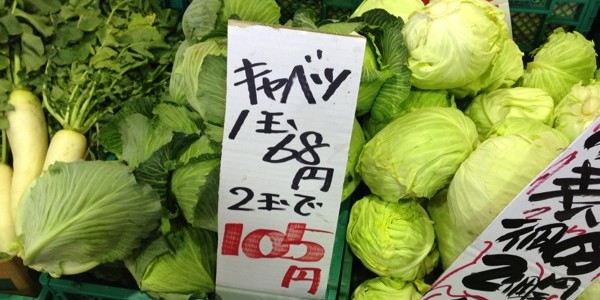 キャベツ
1玉、
68
円
2玉で
105
円
2個